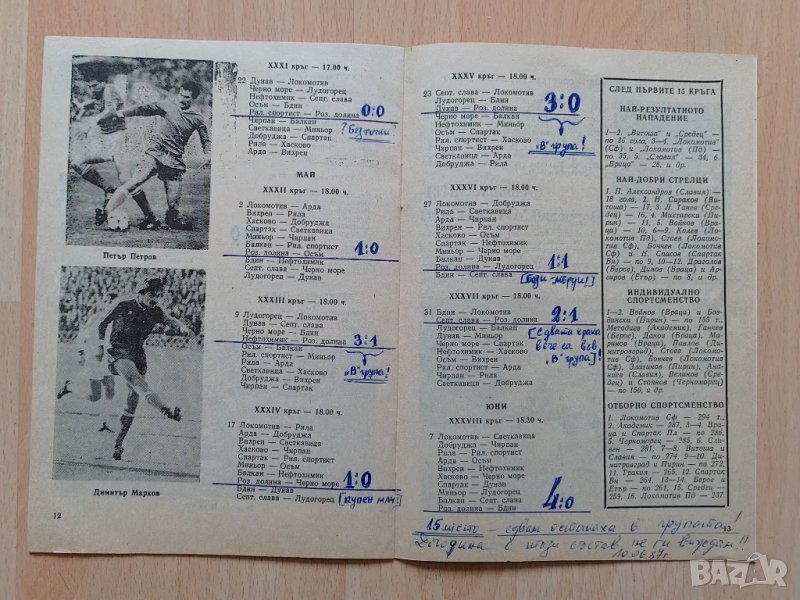 XXXI кръг — 17.00 ч.
22 Дунав — Локомотив
Черно море — Лудогорец
Нефтохимик — Септ. слава
Осъм — Бдин
Рил. спортист — Роз. долина 0:0
Чирпан — Балкан
Светкавица — Миньор
Добруджа — Спартак
Рила — Хасково
Арда — Вихрен
МАЙ
XXXII кръг — 18.00 ч.
2 Локомотив — Арда
Вихрен — Рила
Хасково — Добруджа
Спартак — Светкавица
Миньор — Чирпан
Балкан — Рил. спортист
Роз. долина — Осъм 1:0
Бдин — Нефтохимик
Септ. слава — Черно море
Лудогорец — Дунав
XXXIII кръг — 18.00 ч.
9 Лудогорец — Локомотив
Дунав — Септ. слава
Черно море — Бдин
Нефтохимик — Роз. долина 3:1
Осъм — Балкан
Рил. спортист — Миньор
Чирпан — Спартак
Светкавица — Хасково
Добруджа — Вихрен
Рила — Арда
"В" група!
XXXIV кръг — 18.00 ч.
17 Локомотив — Рила
Арда — Добруджа
Вихрен — Светкавица
Хасково — Чирпан
Спартак — Рил. спортист
Миньор — Осъм
Балкан — Нефтохимик
Роз. долина — Черно море 1:0
Бдин — Дунав
Септ. слава — Лудогорец
[купен мач]
Петър Петров
Димитър Марков
12
XXXV кръг — 18.00 ч.
23 Септ. слава — Локомотив
Лудогорец — Бдин
Дунав — Роз. долина 3:0
Черно море — Балкан
Нефтохимик — Миньор
Осъм — Спартак
Рил. спортист — Хасково
Чирпан — Вихрен
Светкавица — Арда
Добруджа — Рила
"В" група!
XXXVI кръг — 18.00 ч.
27 Локомотив — Добруджа
Рила — Светкавица
Арда — Чирпан
Вихрен — Рил. спортист
Хасково — Осъм
Спартак — Нефтохимик
Миньор — Черно море
Балкан — Дунав
Роз. долина — Лудогорец 1:1
Бдин — Септ. слава
XXXVII кръг — 18.00 ч.
31 Бдин — Локомотив
Септ. слава — Роз. долина 2:1
Лудогорец — Балкан
Дунав — Миньор
Черно море — Спартак
Нефтохимик — Хасково
Осъм — Вихрен
Рил. спортист — Арда
Чирпан — Рила
Светкавица — Добруджа
[С двата крака
вече са във
"В" група]!
ЮНИ
XXXVIII кръг — 18.30 ч.
7 Локомотив — Светкавица
Добруджа — Чирпан
Рила — Рил. спортист
Арда — Осъм
Вихрен — Нефтохимик
Хасково — Черно море
Спартак — Дунав
Миньор — Лудогорец
Балкан — Септ. слава
Роз. долина — Бдин 4:0
СЛЕД ПЪРВИТЕ 15 КРЪГА
НАЙ-РЕЗУЛТАТНОТО
НАПАДЕНИЕ
1—2. „Витоша" и „Средец" —
по 36 гола, 3—4. „Локомотив"
(Сф) и „Локомотив (Пд) —
по 35, 5. „Славия" — 34, 6.
„Враца" — 28, и др.
НАЙ-ДОБРИ СТРЕЛЦИ
1. П. Александров (Славия) —
18 гола, 2. Н. Сираков (Ви-
тоша) — 17, 3. Л. Танев (Сре-
дец) — 16, 4. Михтарски (Пи-
рин) — 11, 5. Войнов (Вра-
ца) — 10, 6—9. Колев (Ло-
комотив Пд), Стоев (Локомо-
тив Сф), Бончев (Локомотив
Сф) и Н. Спасов (Спартак
Вн) — по 9, 10—12. Драголов
(Берое), Данов (Враца) и Ар-
гиров (Етър) — по 8, и др.
ИНДИВИДУАЛНО
СПОРТСМЕНСТВО
1—2. Войнов (Враца) и Бог-
дански (Пирин) — по 155 т.,
Методиев (Академик), Ганчев
(Берое), Данов (Враца), Ма-
ринов (Враца), Павлов (Ди-
митровград), Стоев (Локомо-
тив Сф), Бончев (Локомотив
Сф), Златинов (Пирин), Ана-
ниев (Славия), Велинов (Сре-
дец) и Стоянов (Черноморец)
— по 150, и др.
ОТБОРНО СПОРТСМЕНСТВО
1. Локомотив Сф — 294 т.,
2. Академик — 287, 3—4. Вра-
ца и Спартак Пл — по 286,
5. Черноморец — 285, 6. Сли-
вен — 281, 7—8. Витоша и
Славия — по 274, 9—10. Ди-
митровград и Пирин — по 272,
11. Тракия — 265, 12. Спартак
Вн — 264, 13—14. Берое и
Етър — по 261, 15. Средец —
259, 16. Локомотив Пд — 237.
13
15 място — едвам останаха в групата!
Догодина с този състав не ги виждам!!
10.06.87г.
BAZAR